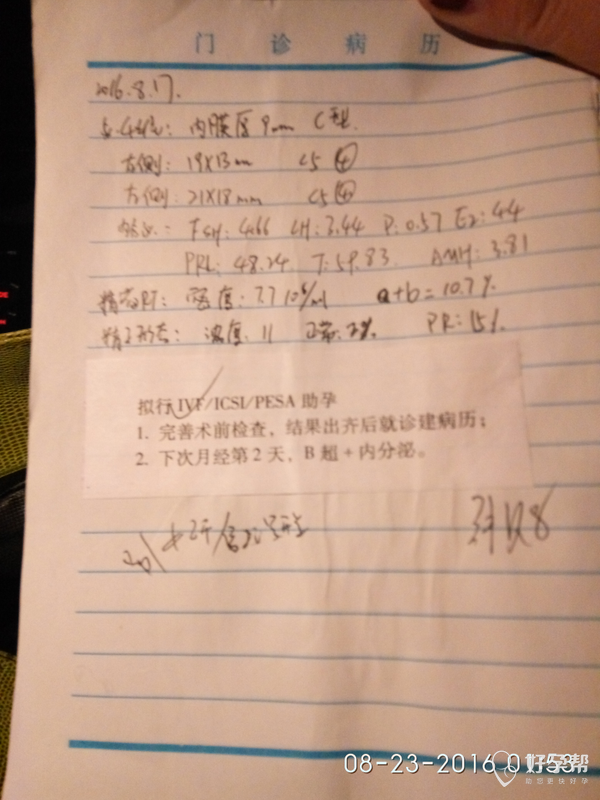 门 诊 病 历
2016.8.17.
内膜厚9mm C型
侧: 19X13mm <5 ④
侧: 21X18mm <5 ④
FSH: 4.66 LH: 3.44 P: 0.57 E2: 44
PRL: 48.24 T: 59.83 AMH: 3.81
精液RT: 密度: 7.7 10^6/ml a+b=10.7%
精子形态: 浓度: 11 正常: 2% PR: 15%
拟行IVF/ICSI/PESA 助孕
1. 完善术前检查，结果出齐后就诊建病历；
2. 下次月经第 2 天，B 超 + 内分泌。
08-23-2016 01:53
好孕帮
助您更快好孕